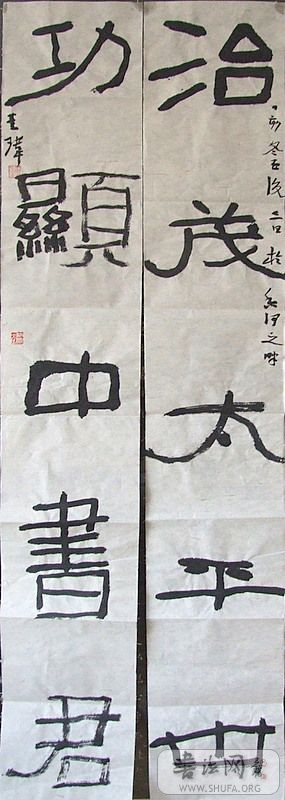 治茂太平世
亥冬至後二日於
河之畔
功顯中書君
王瑋
书法网
WWW.SHUFA.ORG